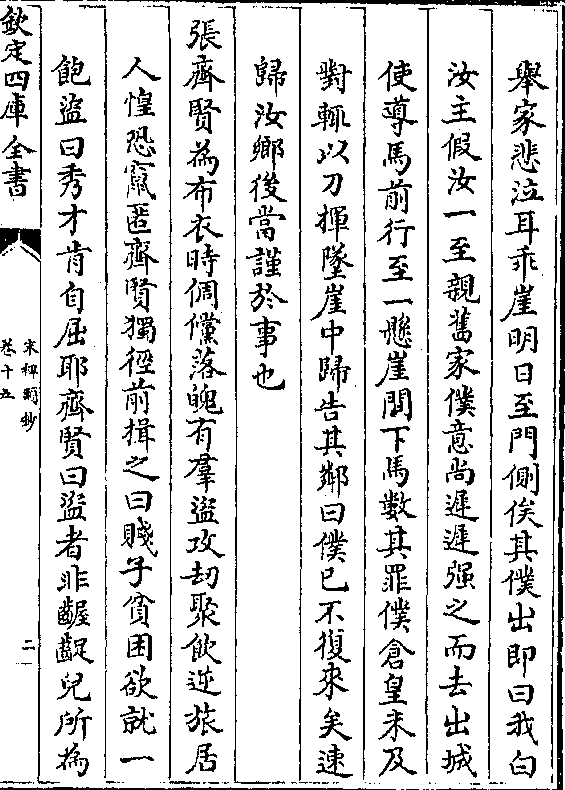 舉家悲泣耳乖崖明日至門側俟其僕出即曰我白
汝主假汝一至親舊家僕意尚遲遲强之而去出城
使導馬前行至一懸崖間下馬數其罪僕倉皇未及
對輒以刀揮墜崖中歸告其鄰曰僕已不復來矣速
歸汝鄉後當謹於事也
張齊賢為布衣時倜儻落魄有羣盜攻刧聚飲逆旅居
人惶恐竄匿齊賢獨徑前揖之曰賤子貧困欲就一
飽盜曰秀才肯自屈耶齊賢曰盜者非齷齪兒所為
欽定四庫全書
宋稗類鈔
卷十五
二